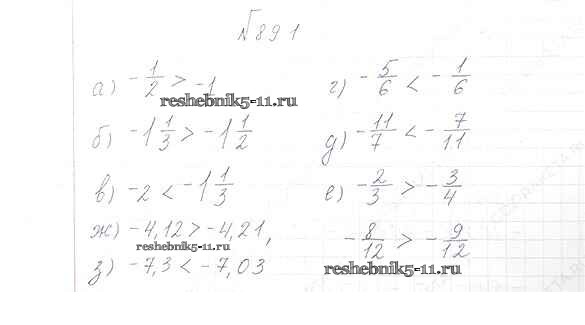 №891
а) -1/2 > -1
reshebnik5-11.ru
б) -1 1/3 > -1 1/2
в) -2 < -1 1/3
ж) -4,12 > -4,21,
reshebnik5-11.ru
з) -7,3 < -7,03
г) -5/6 < -1/6
д) -11/7 < -7/11
е) -2/3 > -3/4
-8/12 > -9/12
reshebnik5-11.ru